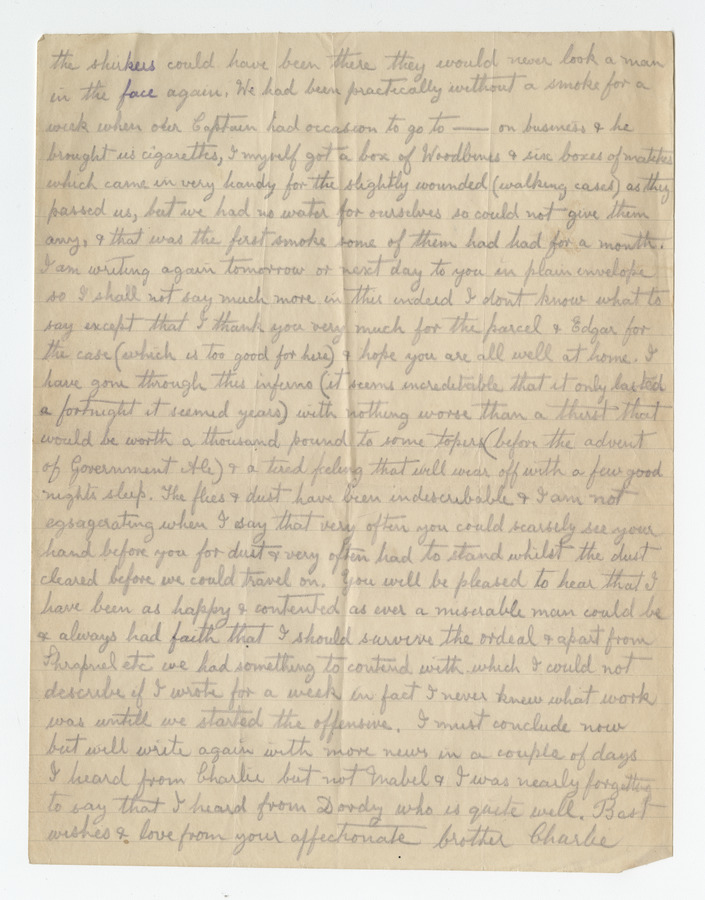 the shirkers could have been there they would never look a man
in the face again. We had been practically without a smoke for a
week when our Captain had occasion to go to — on business & he
brought us cigarettes, I myself got a box of Woodbines & six boxes of matches
which came in very handy for the slightly wounded (walking cases) as they
passed us, but we had no water for ourselves so could not give them
any, & that was the first smoke some of them had had for a month.
I am writing again tomorrow or next day to you in plain envelope
so I shall not say much more in this indeed I dont know what to
say except that I thank you very much for the parcel & Edgar for
the case (which is too good for here) & hope you are all well at home. I
have gone through this inferno (it seems increditable that it only lasted
a fortnight it seemed years) with nothing worse than a thirst that
would be worth a thousand pound to some topers (before the advent
of Government Ale) & a tired feeling that will wear off with a few good
nights sleep. The flies & dust have been indescribable & I am not
egsagerating when I say that very often you could scarsely see your
hand before you for dust & very often had to stand whilst the dust
cleared before we could travel on. You will be pleased to hear that I
have been as happy & contented as ever a miserable man could be
& always had faith that I should survive the ordeal & apart from
Shrapnel etc we had something to contend with which I could not
describe if I wrote for a week in fact I never knew what work
was untill we started the offensive. I must conclude now
but will write again with more news in a couple of days
I heard from Charlie but not Mabel & I was nearly forgetting
to say that I heard from Dordy who is quite well. Best
wishes & love from your affectionate brother Charlie